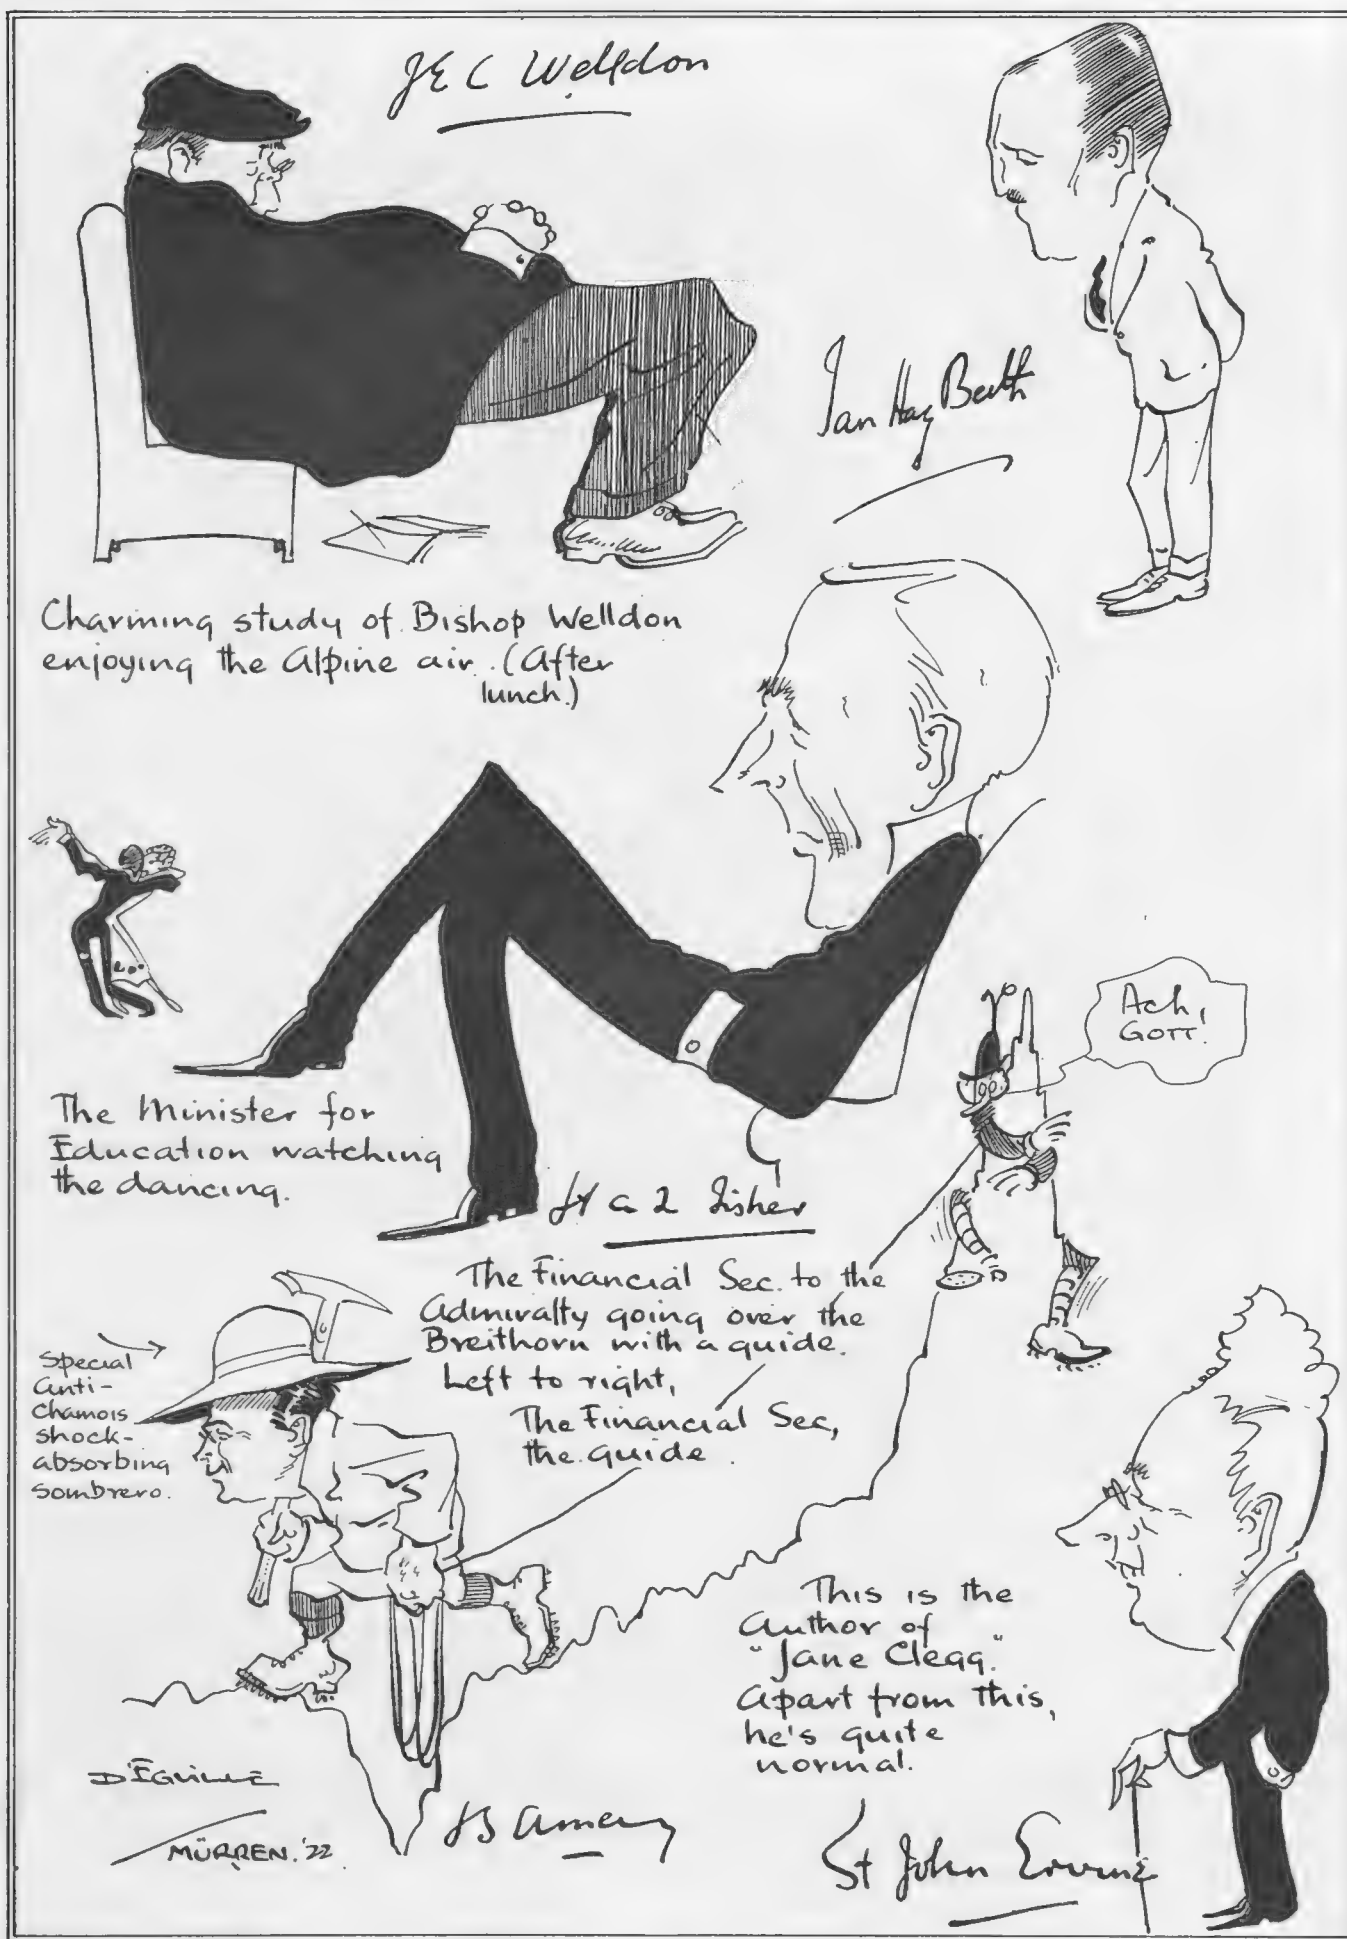 J E C Welldon
Ian Hay Beith
Charming study of Bishop Welldon
enjoying the Alpine air. (After
lunch.)
Ach,
GOTT!
The Minister for
Education watching
the dancing.
H A L Fisher
The Financial Sec. to the
Admiralty going over the
Breithorn with a guide.
Left to right,
The Financial Sec,
the guide.
Special
Anti-
Chamois
shock-
absorbing
sombrero.
This is the
Author of
"Jane Clegg."
Apart from this,
he's quite
normal.
D'EGVILLE
MÜRREN. '22
L S Amery
St John Ervine